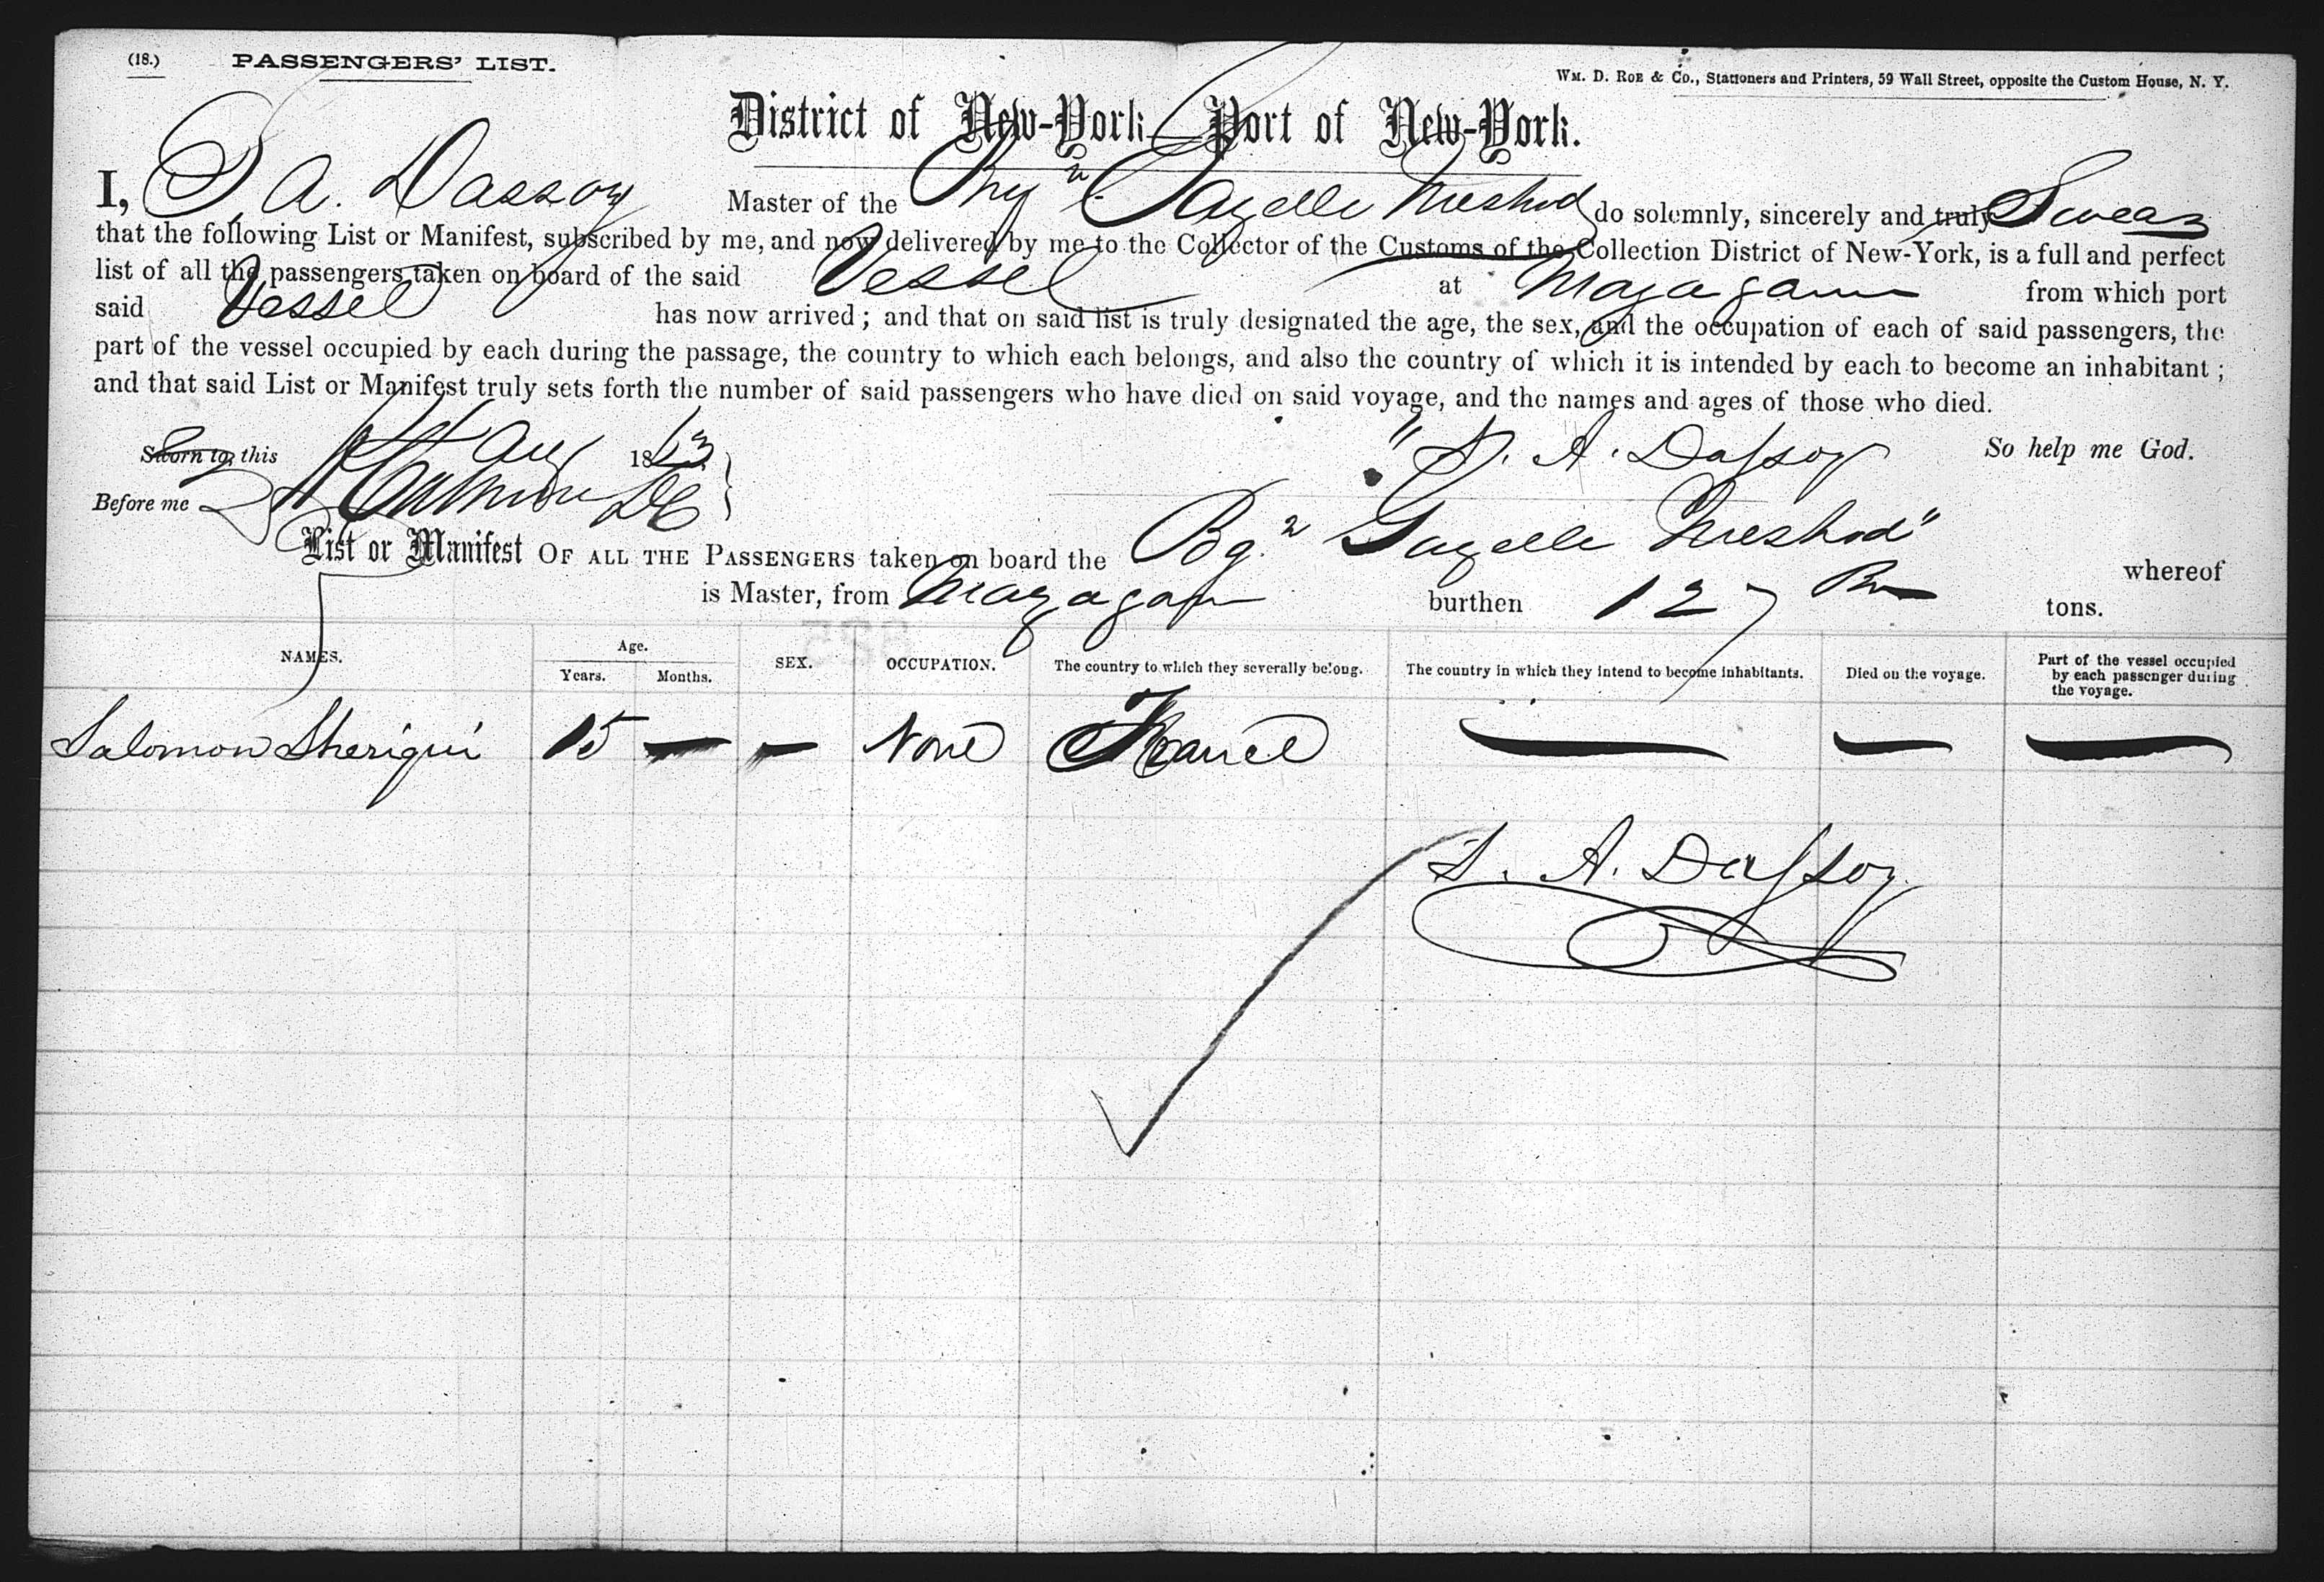 (18.) PASSENGERS' LIST.
WM. D. ROE & CO., Stationers and Printers, 59 Wall Street, opposite the Custom House, N. Y.
District of New-York Port of New-York.
I, S. A. Dassoy Master of the Brig Gazelle do solemnly, sincerely and truly Swear
that the following List or Manifest, subscribed by me, and now delivered by me to the Collector of the Customs of the Collection District of New-York, is a full and perfect
list of all the passengers taken on board of the said Vessel at Mazagan from which port
said Vessel has now arrived; and that on said list is truly designated the age, the sex, and the occupation of each of said passengers, the
part of the vessel occupied by each during the passage, the country to which each belongs, and also the country of which it is intended by each to become an inhabitant;
and that said List or Manifest truly sets forth the number of said passengers who have died on said voyage, and the names and ages of those who died.
Sworn to, this Aug 1863 S. A. Dassoy So help me God.
Before me
List or Manifest OF ALL THE PASSENGERS taken on board the Bg. "Gazelle whereof
is Master, from Mazagan burthen 127 tons.
NAMES. Age. Years. Months. SEX. OCCUPATION. The country to which they severally belong. The country in which they intend to become inhabitants. Died on the voyage. Part of the vessel occupied by each passenger during the voyage.
Salomon Sheriqui 15 — — None France — — —
S. A. Dassoy